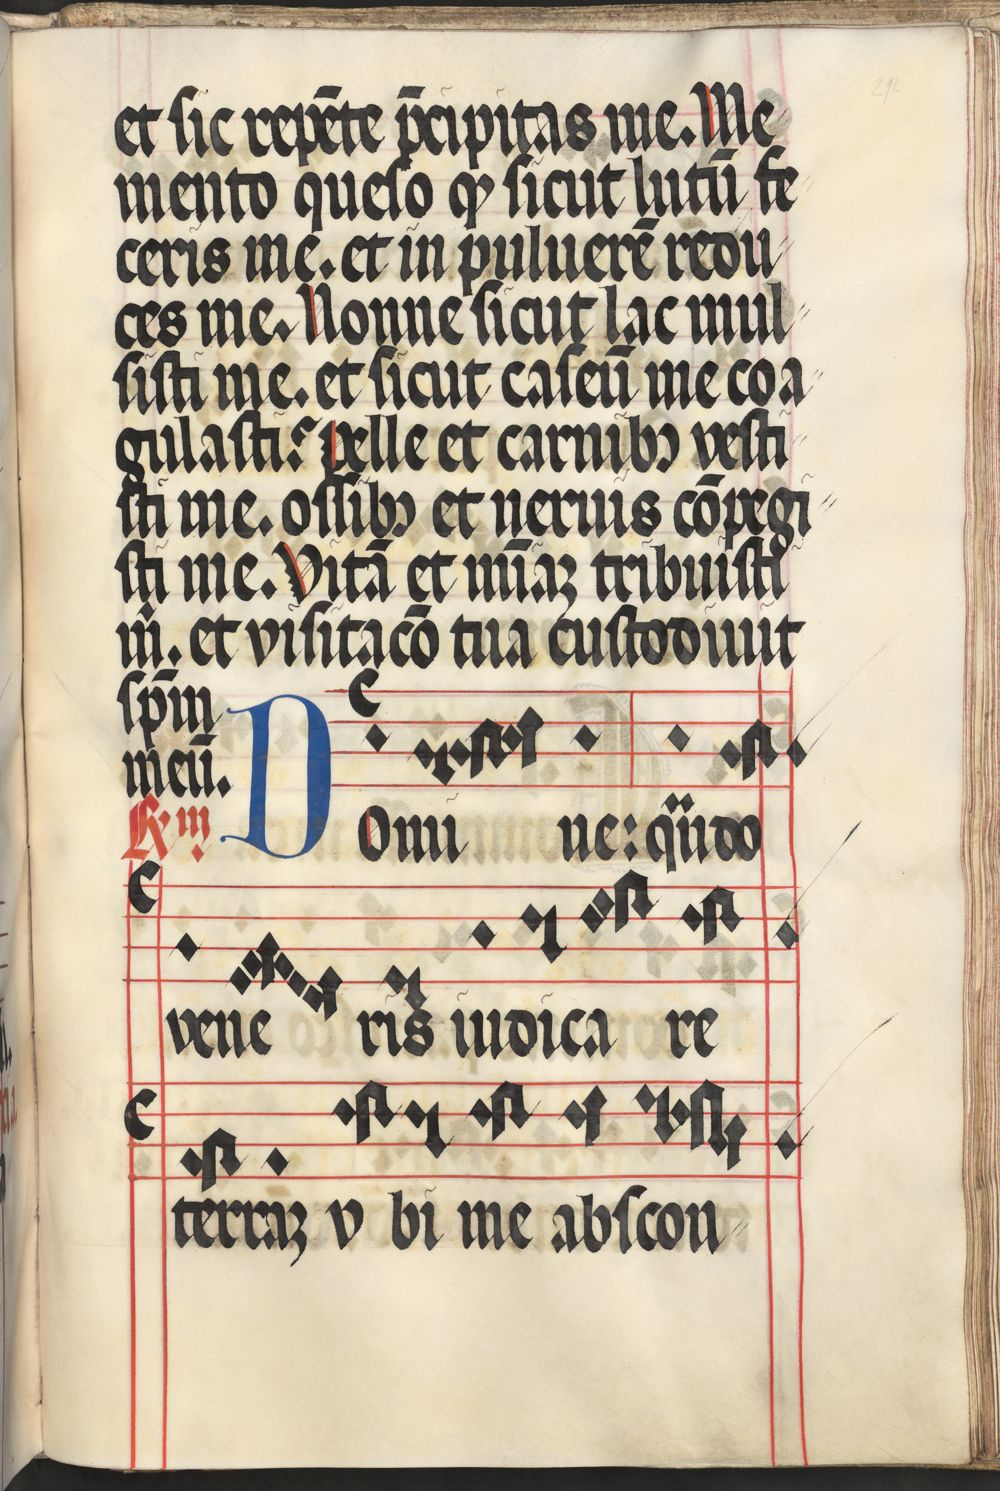 et sic repēte p̄cipitas me. Me
mento queso ꝙ sicut lutū fe
ceris me. et in puluerē redu
ces me. Nonne sicut lac mul
sisti me. et sicut caseū me coa
gulasti? pelle et carnibꝫ vesti
sti me. ossibꝫ et neruis cōpegi
sti me. Vitā et mīaꝫ tribuisti
m̄. et visitacō tua custodiuit
sp̄m
meū.
R iij
Domi ne: qn̄do
vene ris iudica re
terraꝫ v bi me abscon